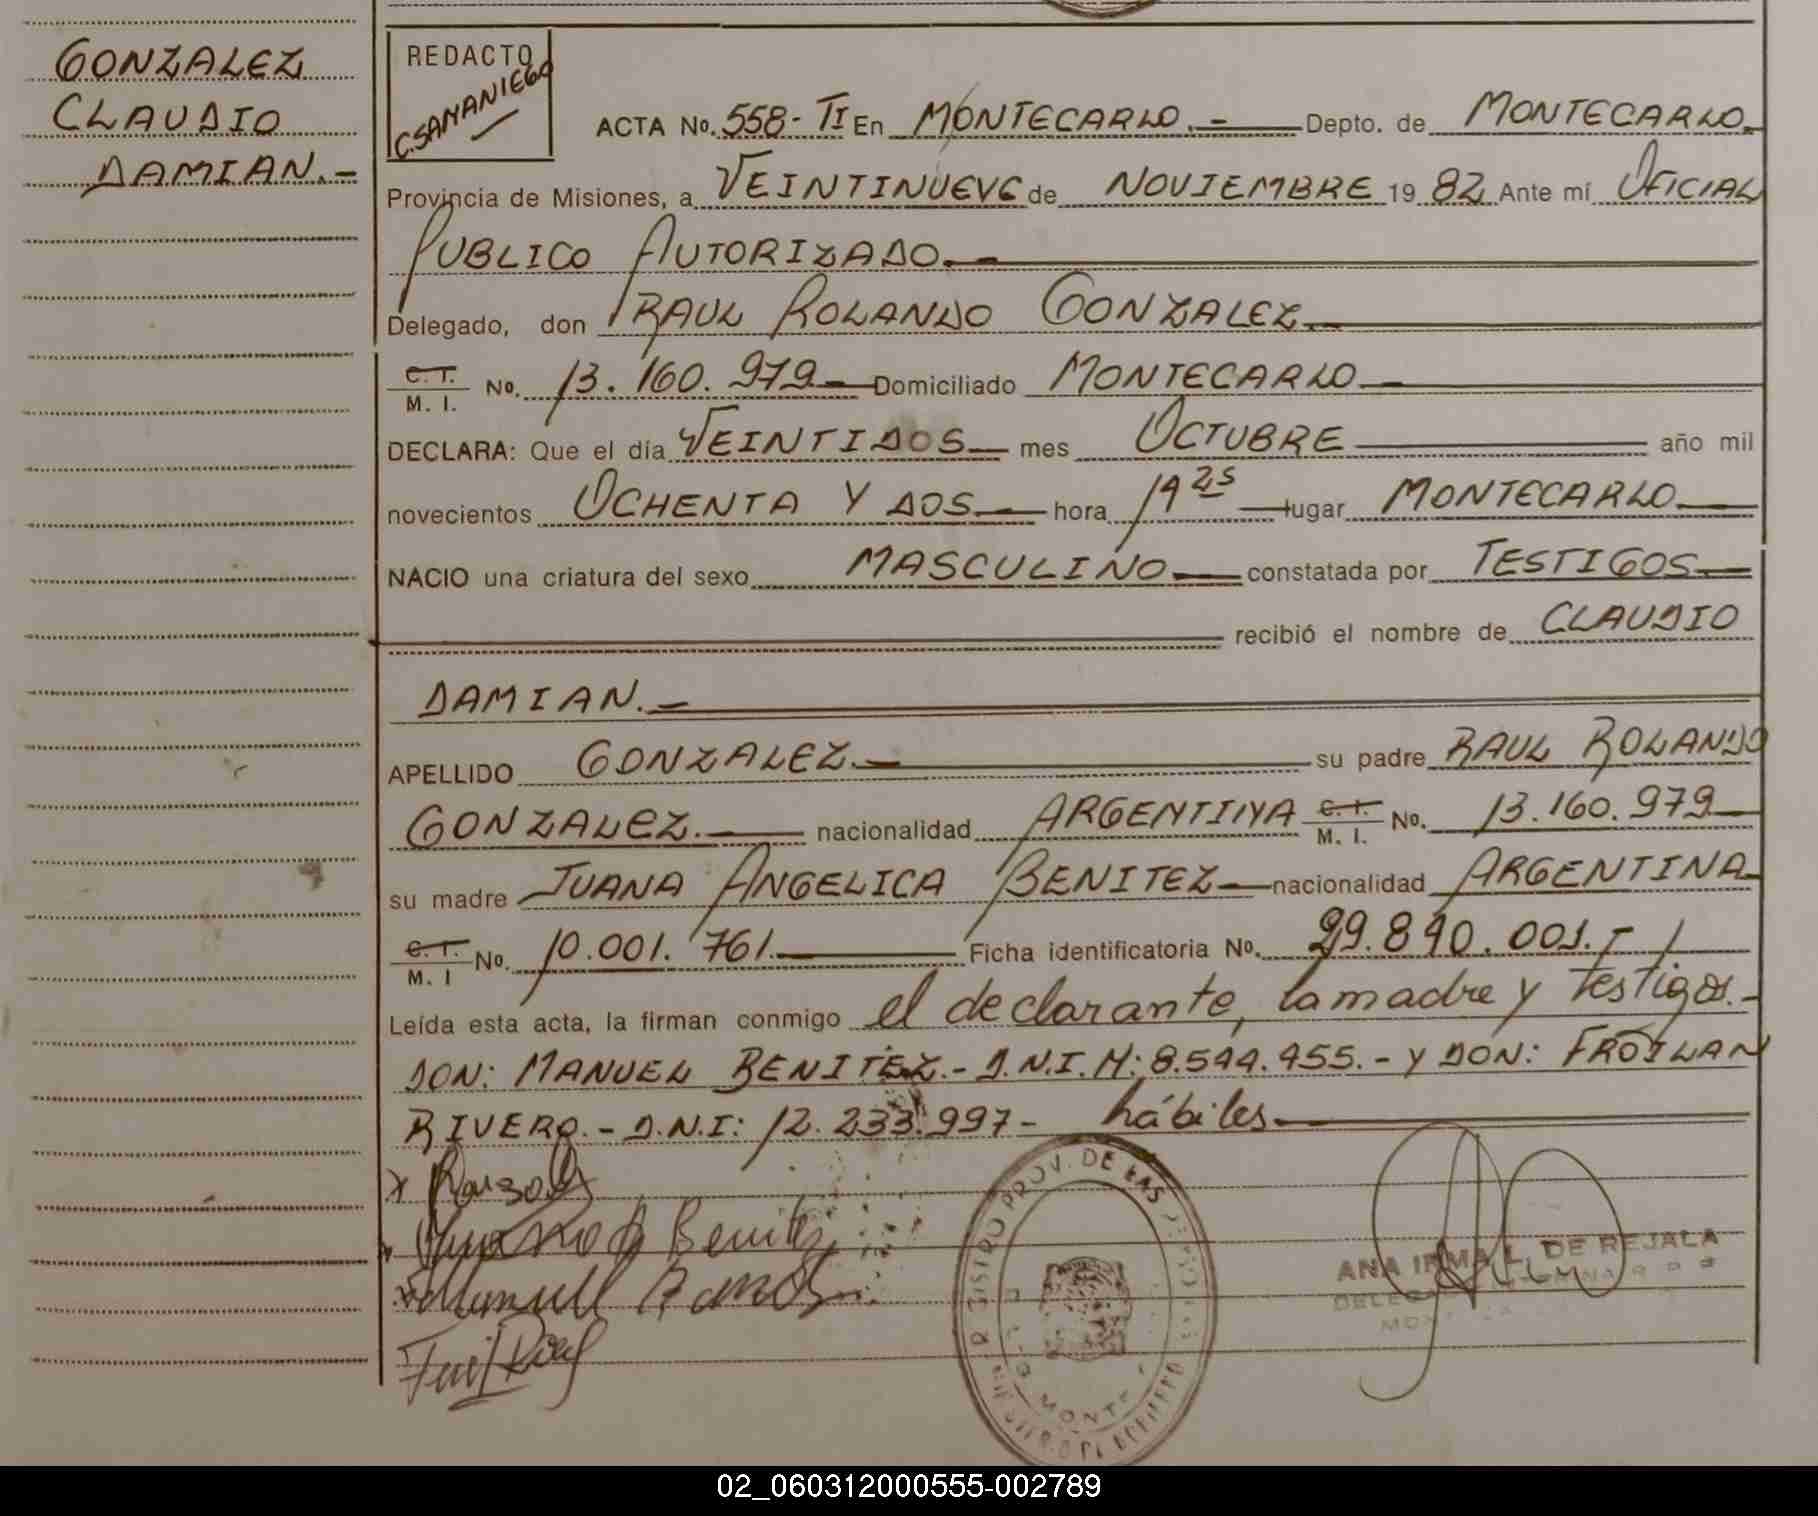 GONZALEZ
CLAUDIO
DAMIAN.-
REDACTO
C.SAMANIEGO
ACTA No. 558-TI En MONTECARLO.- Depto. de MONTECARLO.
Provincia de Misiones, a VEINTINUEVE de NOVIEMBRE 19 82 Ante mí OFICIAL
PUBLICO AUTORIZADO.-
Delegado, don RAUL ROLANDO GONZALEZ.-
C.I. M. I. No. 13.160.979- Domiciliado MONTECARLO-
DECLARA: Que el día VEINTIDOS- mes OCTUBRE año mil
novecientos OCHENTA Y DOS- hora 19 25 lugar MONTECARLO-
NACIO una criatura del sexo MASCULINO- constatada por TESTIGOS-
recibió el nombre de CLAUDIO
DAMIAN.-
APELLIDO GONZALEZ.- su padre RAUL ROLANDO
GONZALEZ.- nacionalidad ARGENTINA C.I. M. I. No. 13.160.979-
su madre JUANA ANGELICA BENITEZ- nacionalidad ARGENTINA-
C.I. M. I No. 10.001.761.- Ficha identificatoria No. 29.890.001.-
Leída esta acta, la firman conmigo el declarante, la madre y testigos.-
DON: MANUEL BENITEZ.- D.N.I. M: 8.544.455.- Y DON: FROILAN
RIVERO.- D.N.I: 12.233.997- hábiles-
PROV. DE LAS
MONTE
ANA IRMA L. DE REJALA
02_060312000555-002789